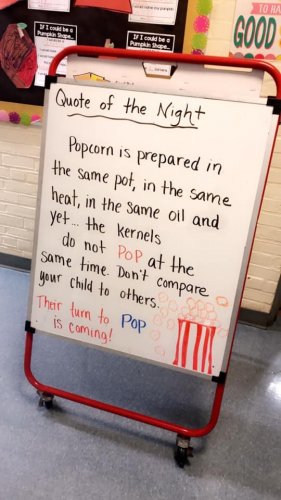 If I could be a
Pumpkin Shape...
If I could be a
Pumpkin Shape...
If I could be a
Pumpkin Shape...
TO HA
GOOD
Quote of the Night
Popcorn is prepared in
the same pot, in the same
heat, in the same oil and
yet... the kernels
do not POP at the
same time. Don't compare
your child to others.
Their turn to POP
is coming!